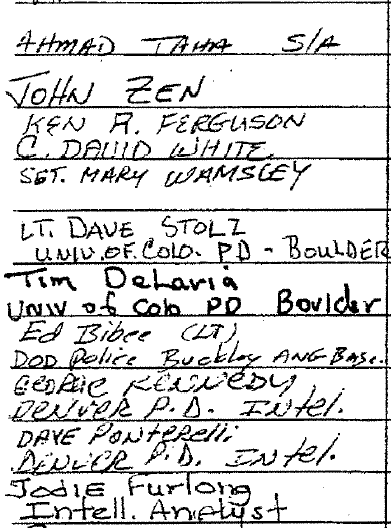 AHMAD TAHA S/A
JOHN ZEN
KEN R. FERGUSON
C. DAVID WHITE
SGT. MARY WAMSLEY
LT. DAVE STOLZ
UNIV. OF. COLO. PD - BOULDER
Tim DeLaria
UNIV of Colo PD Boulder
Ed Bibee (LT)
DOD Police Buckley ANG Base.
GEORGE KENNEDY
DENVER P.D. INtel.
DAVE PONTERELLi
DENVER P.D. INtel.
Jodie Furlong
Intell. Analyst